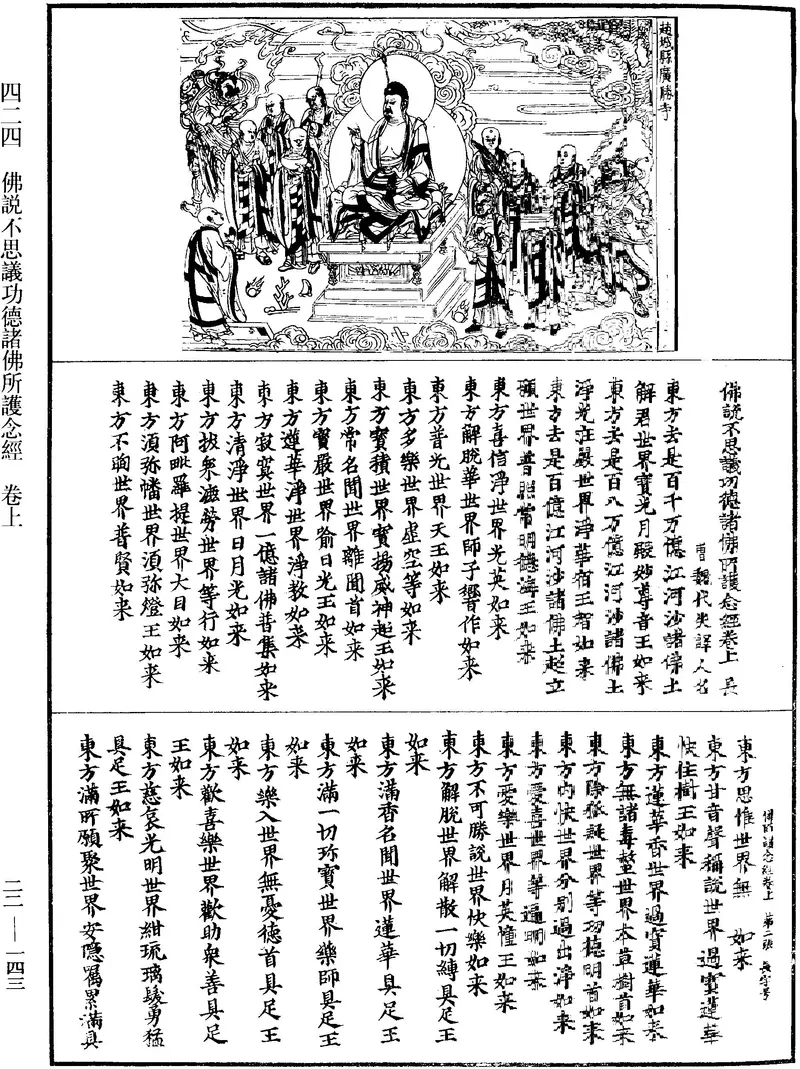 四二四　佛説不思議功德諸佛所護念經　卷上
二二—一四三
趙城縣廣勝寺
佛説不思議功德諸佛所護念經卷上　長
曹魏代失譯人名
東方去是百千万億江河沙諸佛土
解君世界寶光月殿妙尊音王如来
東方去是百八万億江河沙諸佛土
淨光莊嚴世界淨華宿王智如来
東方去是百億江河沙諸佛土起立
願世界普照常明德海王如来
東方喜信淨世界光英如来
東方解脫華世界師子響作如来
東方普光世界天王如来
東方多樂世界虛空等如来
東方寶積世界寶揚威神超王如来
東方常名聞世界離聞首如来
東方寶嚴世界喻日光王如来
東方蓮華淨世界淨教如来
東方寂寞世界一億諸佛普集如来
東方清淨世界日月光如来
東方披衆滋勞世界等行如来
東方阿毗羅提世界大目如来
東方湏弥幡世界湏弥燈王如来
東方不眴世界普賢如来
佛所護念經卷上　第二張　長字号
東方思惟世界無　如来
東方甘音聲稱說世界過寶蓮華
快住樹王如来
東方蓮華香世界過寶蓮華如来
東方無諸毒螫世界本草樹首如来
東方除狐疑世界等功德明首如来
東方內快世界分別過出淨如来
東方愛喜世界等遍明如来
東方愛樂世界月英幢王如来
東方不可勝說世界快樂如来
東方解脫世界解散一切縛具足王
如来
東方滿香名聞世界蓮華具足王
如来
東方滿一切珎寶世界藥師具足王
如来
東方樂入世界無憂德首具足王
如来
東方歡喜樂世界歡助衆善具足
王如来
東方慈哀光明世界紺琉璃髮勇猛
具足王如来
東方滿所願聚世界安隱囑累滿具